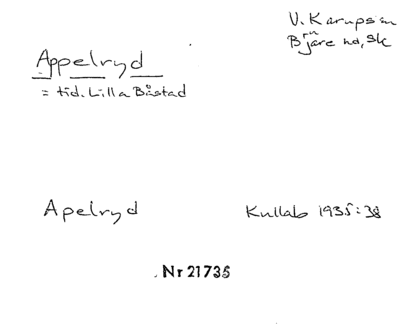 V. Karups sn
Bjäre hd, Sk
Appelryd
= tid. Lilla Båstad
Apelryd Kullab 1935:38
Nr 21735